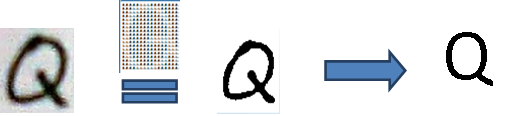 Q Q Q